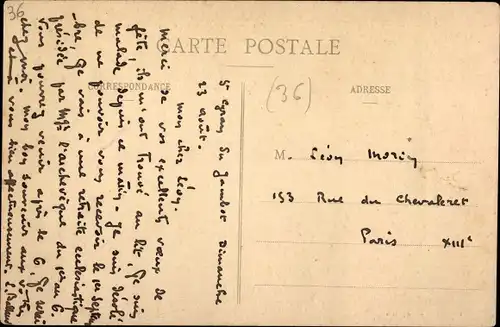 36
CARTE POSTALE
CORRESPONDANCE
ADRESSE
(36)
M. Léon Morin
153 Rue du Chevaleret
Paris XIIIe
Dimanche
23 août.
mon cher Léon.
Merci de vos excellents vœux de
fête, ils m'ont trouvé au lit. Je suis
malade depuis ce matin. Je suis désolé
de ne pouvoir vous recevoir le 1er septem
bre, je vais à une retraite ecclésiastique
présidée par Mgr l'archevêque du 1er au 6.
Vous pourrez venir après le 6, je serai
chez moi. mon bon souvenir aux vôtres
à vous bien affectueusement.